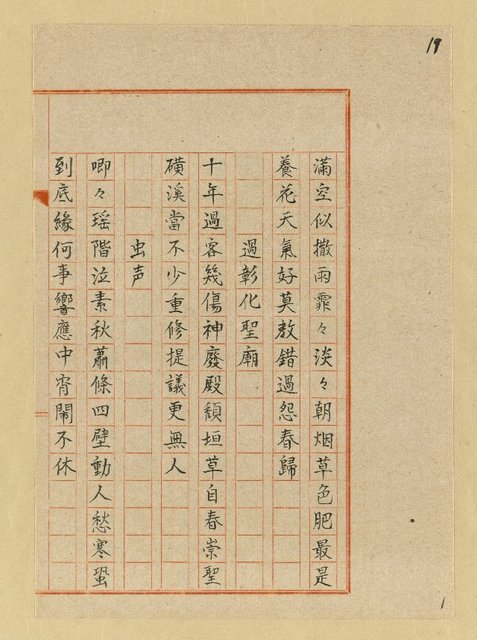 19
滿空似撒雨霏々淡々朝烟草色肥最是
養花天氣好莫教錯過怨春歸
過彰化聖廟
十年過客幾傷神廢殿頹垣草自春崇聖
磺溪當不少重修提議更無人
虫声
唧々瑶階泣素秋蕭條四壁動人愁寒蛩
到底緣何事響應中宵鬧不休
1